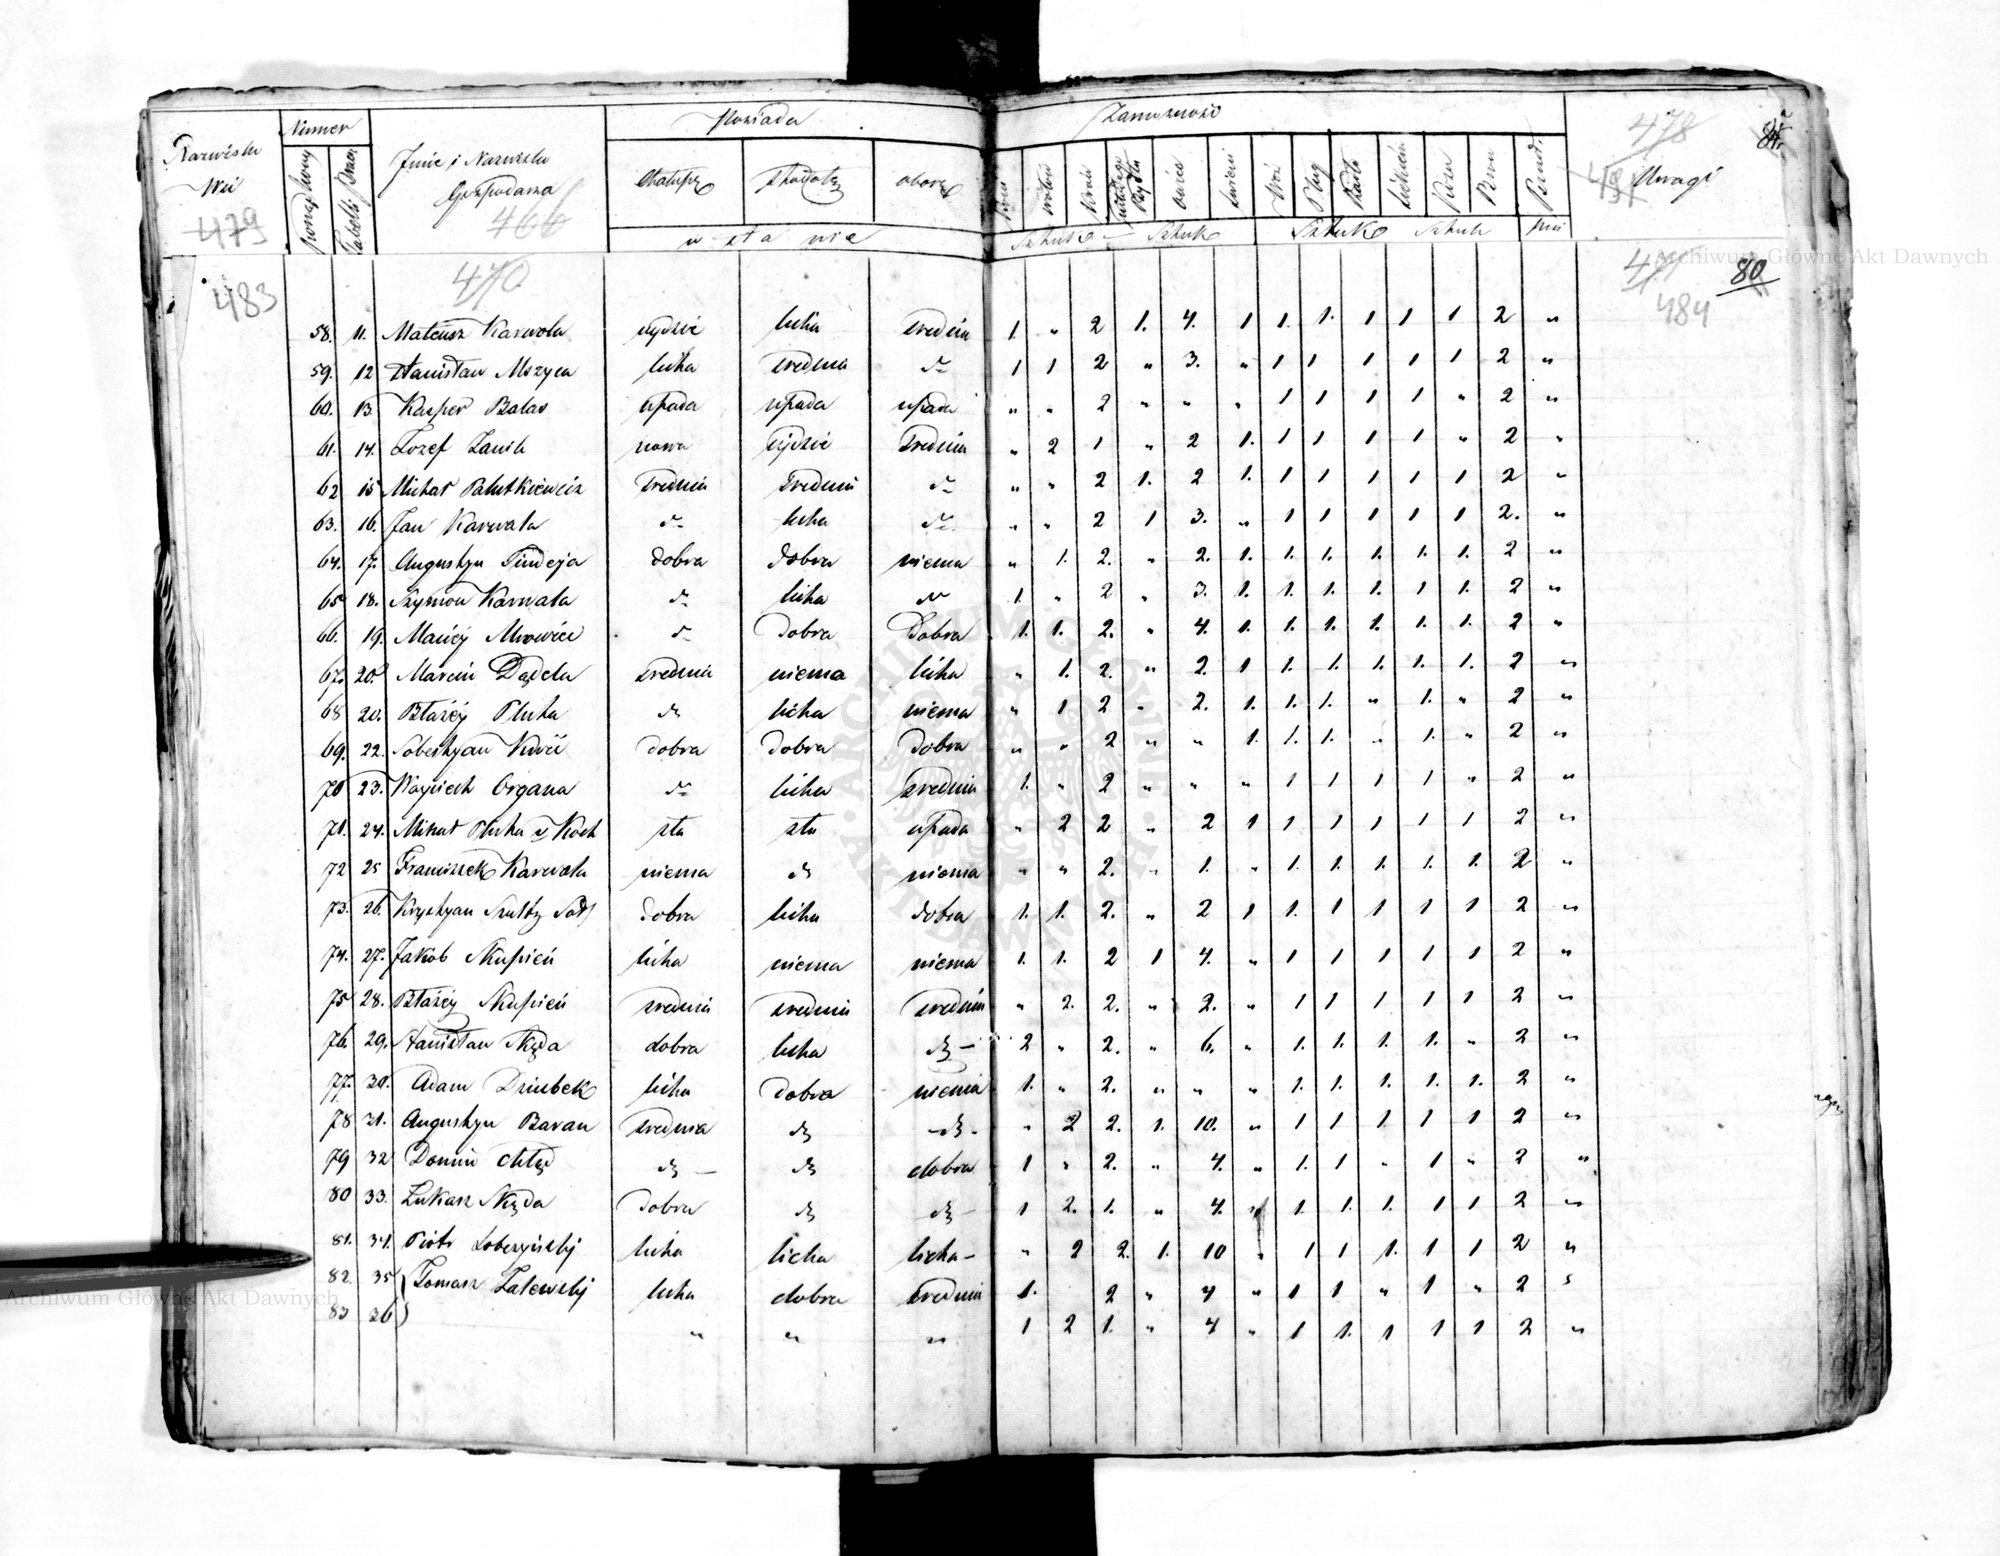 Nazwisko Wsi
Numer
porządkowy
Tabelli
Imie i Nazwisko Gospodarza
Posiada
Chałupę
Stodołę
oborę
w stanie
Zamożność
Koni
wołów
Krów
Owiec
świeni
Wóz
Pług
Radło
Kosa
Sztuk Sztuk
Sztuk Sztuk
Uwagi
479
466
478
483
470
80
484
Archiwum Główne Akt Dawnych
58. 11. Mateusz Karwola ujdzie licha srednia 1. " 2 1. 4. 1 1. 1. 1 1 1 2 "
59. 12 Stanisław Mszyca licha srednia do 1 1 2 " 3. " 1 1 1 1 1 2 "
60. 13. Kasper Balas upada upada upada " " 2 " " " 1 1 1 1 " 2 "
61. 14. Jozef Zanik nowa ujdzie srednia " 2 1 " 2 1. 1 1 1 1 " 2 "
62 15 Michał Palutkiewicz srednia srednia do " " 2 1. 2 1. 1 1 1 1 1 2 "
63. 16. Jan Karwala do licha do " " 2 1 3. " 1 1 1 1 1 2. "
64. 17. Augustyn dobra dobra niema " 1. 2. " 2. 1. 1. 1. 1. 1. 1. 2 "
65 18. Szymon Karwala do licha do 1. " 2 " 3. 1. 1. 1. 1. 1 1. 2 "
66. 19. Maciéy do dobra dobra 1. 1. 2. " 4. 1. 1. 1. 1. 1. 1. 2 "
67. 20. Marcin srednia niema licha " 1. 2. " 2. 1 1. 1. 1. 1. 1. 2 "
68 20. Błażéy Pluha do licha niema " 1 2 " 2. 1. 1. 1. " 1. " 2 "
69. 22. Sobestyan dobra dobra dobra " " 2 " " 1. 1. 1. " 1. " 2 "
70 23. Woyciech Organa do licha srednia 1. " 2 " " " 1 1 1 1 " 2 "
71. 24. Michał Pluha zła zła upada " 2 2 " 2 1 1 1 1 1 1 2 "
72 25 Franciszek Karwala niema do niema " " 2. " 1. " 1. 1. 1. 1. 1. 2 "
73. 26. Krystyan dobra licha dobra 1. 1. 2. " 2 1 1. 1 1 1 1 2 "
74. 27. Jakób Skupień licha niema niema 1. 1. 2 1 4. " 1 1 1 1 1 2 "
75 28. Błażéy Skupień srednia srednia srednia " 2. 2. " 2. " 1 1 1 1 1 2 "
76 29. Stanisław Nęda dobra licha do 2 " 2. " 6. " 1. 1. 1. 1. " 2 "
77. 30. Adam Dziubek licha dobra niema 1. " 2. " " " 1. 1. 1. 1. 1. 2 "
78 31. Augustyn Baran srednia do do " 2 2. 1. 10. " 1 1 1 1 1 2 "
79 32 do do dobra 1 " 2. " 4. " 1. 1 " 1 " 2 "
80 33. Łukasz Nęda dobra do do 1 2. 1. " 4. 1. 1. 1. 1 1 2 "
81. 34. Piotr licha licha licha " 2 2. 1. 10 " 1 1 1. 1 1 2 "
82. 35 Tomasz Zalewski licha dobra srednia 1. 2 " 4 " 1 1 " 1 " 2
83 36 " " " 1 2 1. " 4 " 1 1. 1 1 1 2 "
Archiwum Główne Akt Dawnych